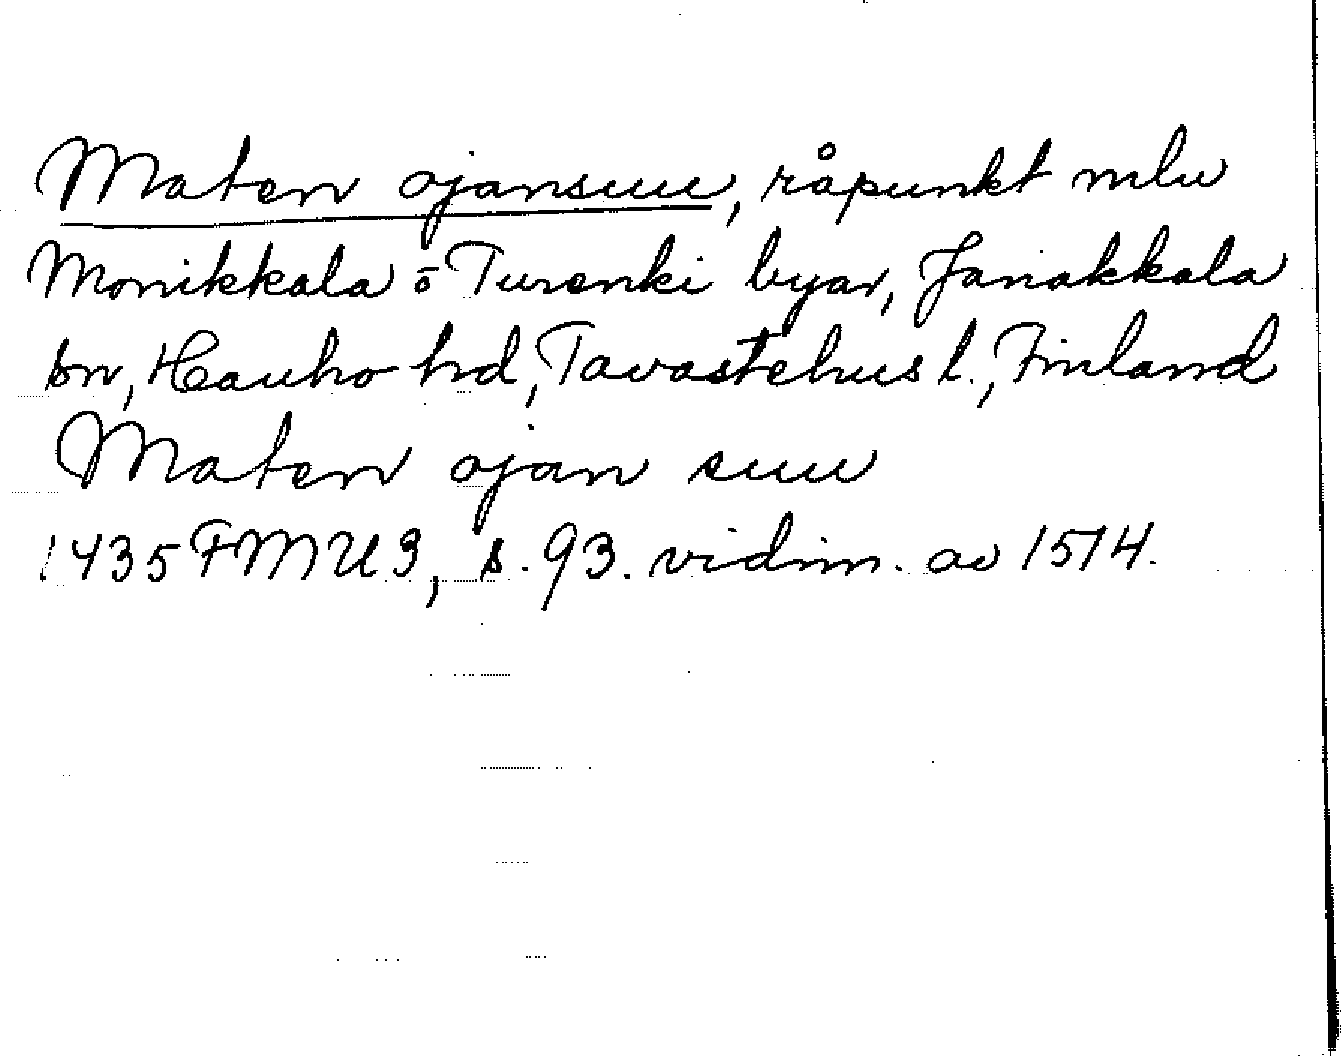 Maten ojansuu, råpunkt mlu
Monikkala o Turenki byar, Janakkala
sn, Hauho hd, Tavastehus l., Finland
Maten ojan suu
1435 FMU 3, s. 93. vidim. av 1514.